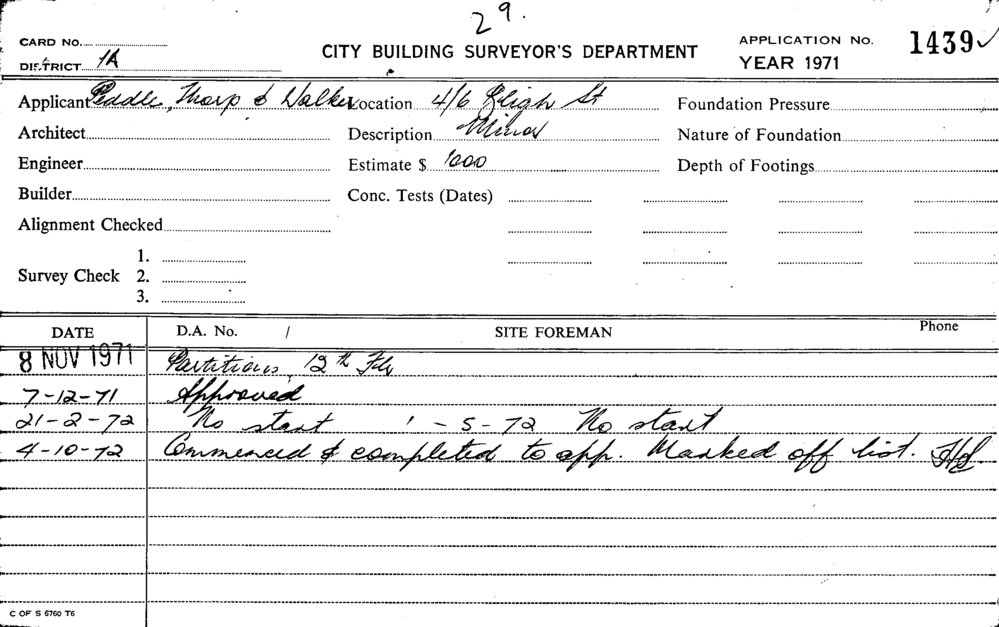 29.
CARD No. APPLICATION No. 1439 ✓
DISTRICT 1A CITY BUILDING SURVEYOR'S DEPARTMENT YEAR 1971
Applicant Peddle, Thorp & Walker Location 4/6 Bligh St Foundation Pressure
Architect Description Minor Nature of Foundation
Engineer Estimate $ 1000 Depth of Footings
Builder Conc. Tests (Dates)
Alignment Checked
1.
Survey Check 2.
3.
DATE D.A. No. / SITE FOREMAN Phone
8 NOV 1971 Partitions, 12th Flr
7-12-71 Approved
21-2-72 No start ' - 5 - 72 No start
4-10-72 Commenced & completed to app. Marked off list.
C OF S 6760 T6